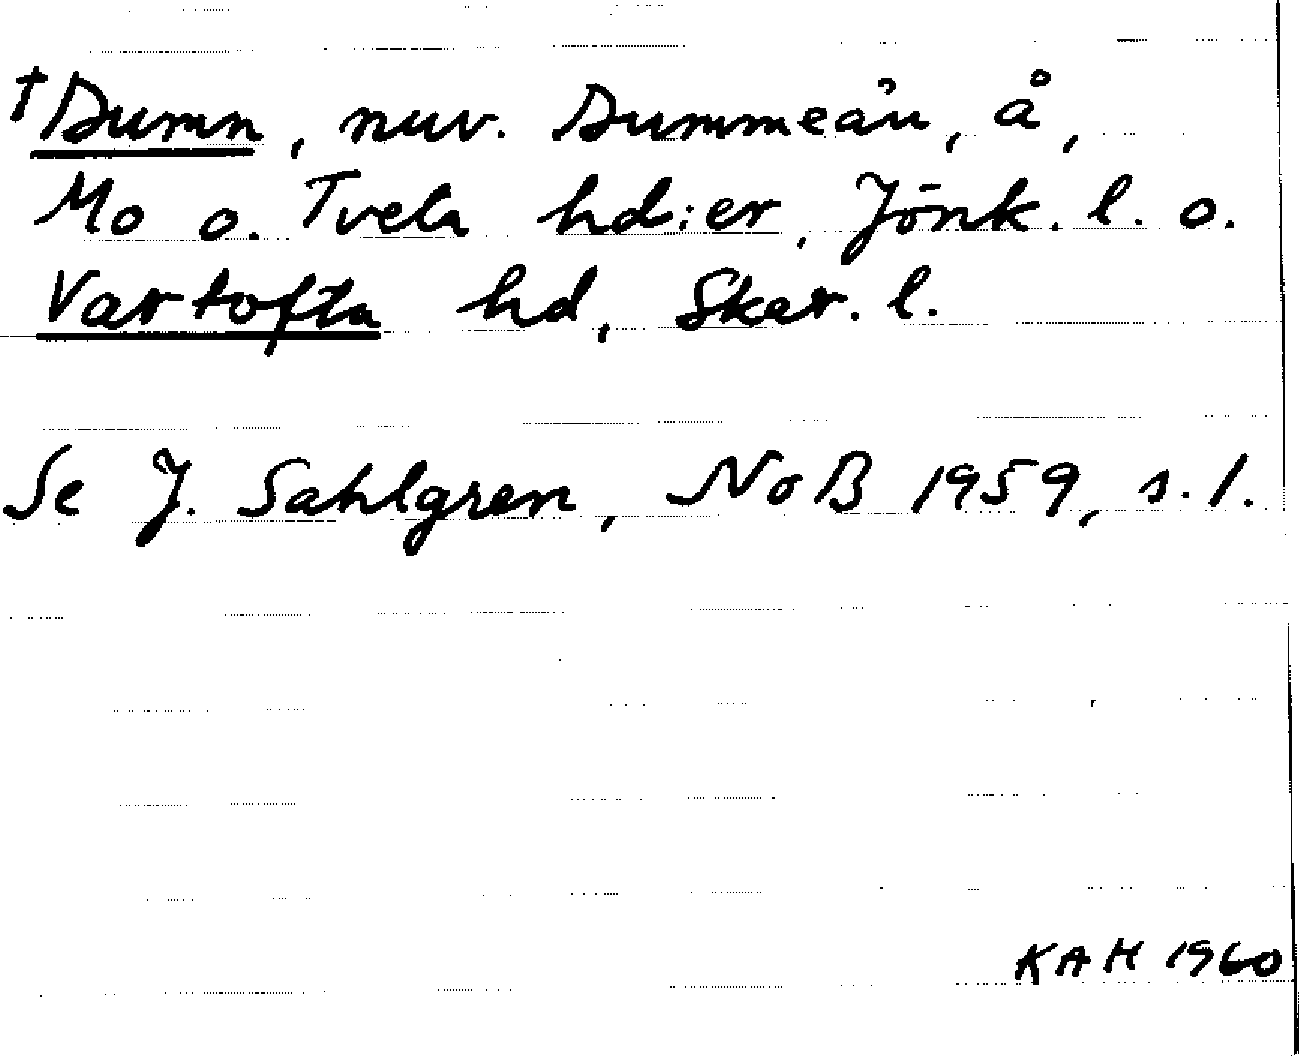 †Dumn, nuv. Dummeån, å,
Mo o. Tveta hd:er, Jönk. l. o.
Vartofta hd, Skar. l.
Se J. Sahlgren, NoB 1959, s. 1.
KAH 1960